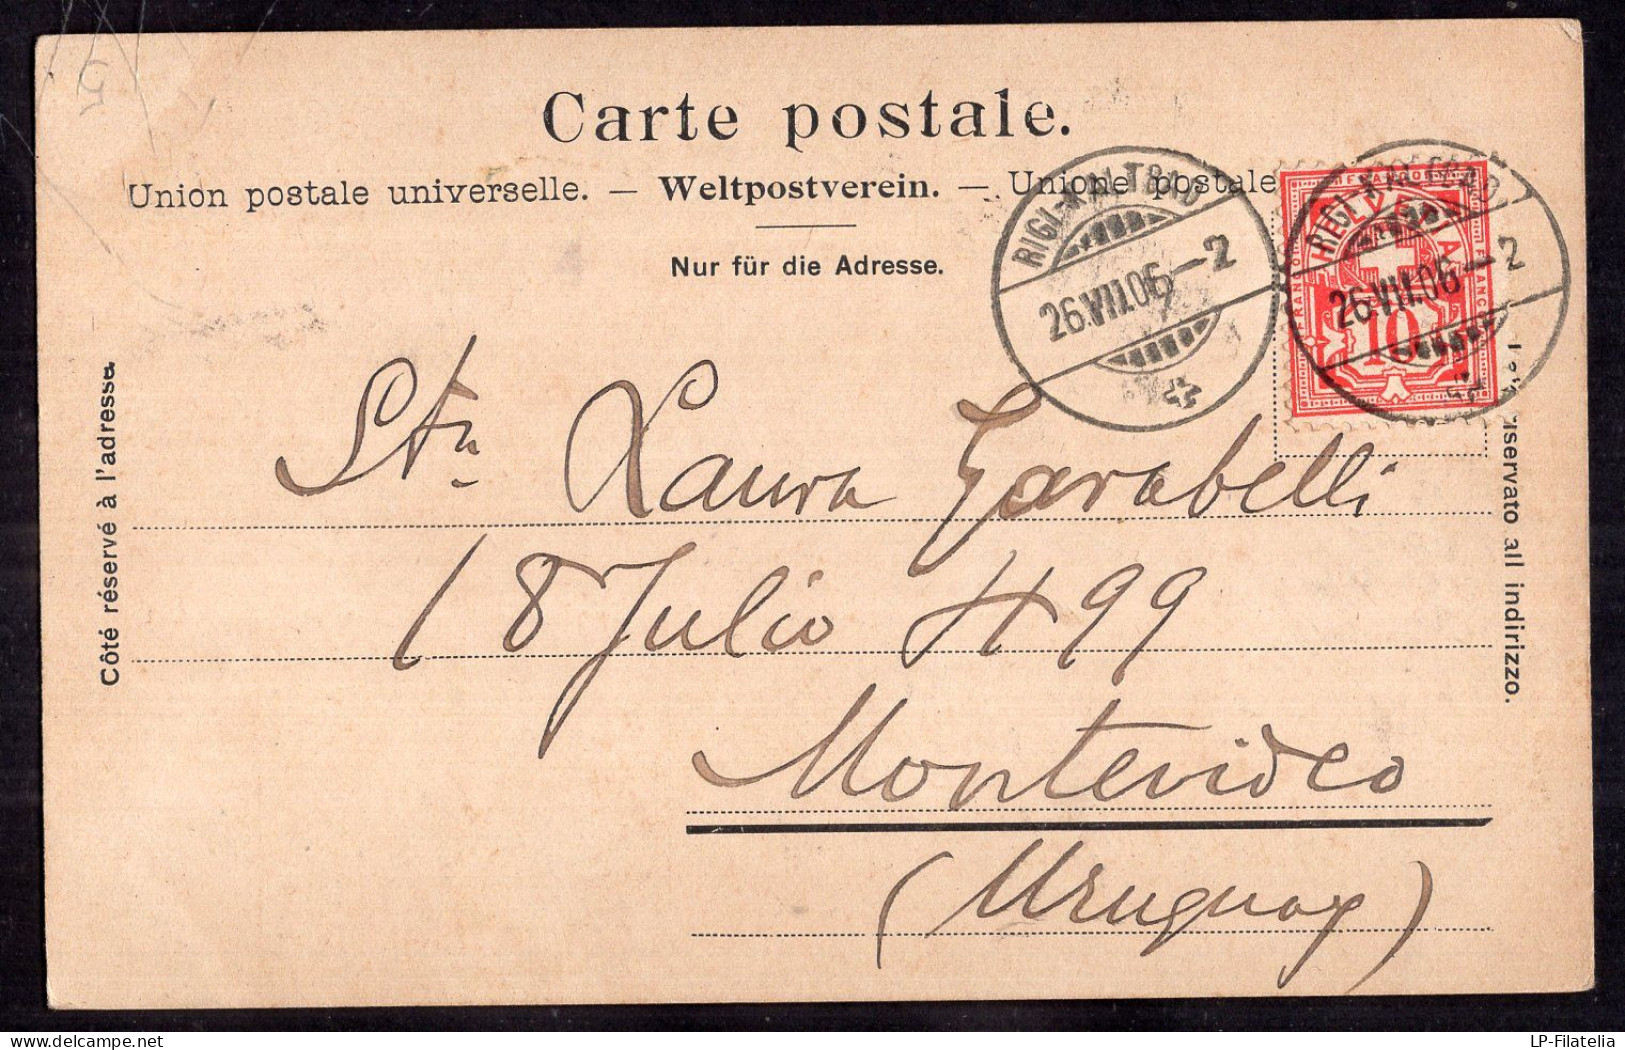 Carte postale.
Union postale universelle. — Weltpostverein. — Unione postale
Nur für die Adresse.
RIGI-KALTBAD
26.VII.06-2
RIGI-KALTBAD
26.VII.06-2
HELVETIA
FRANCO
10
Côté réservé à l'adresse.
all indirizzo.
Sta Laura Garabelli
18 Julio 499
Montevideo
(Uruguay)
LP-Filatelia